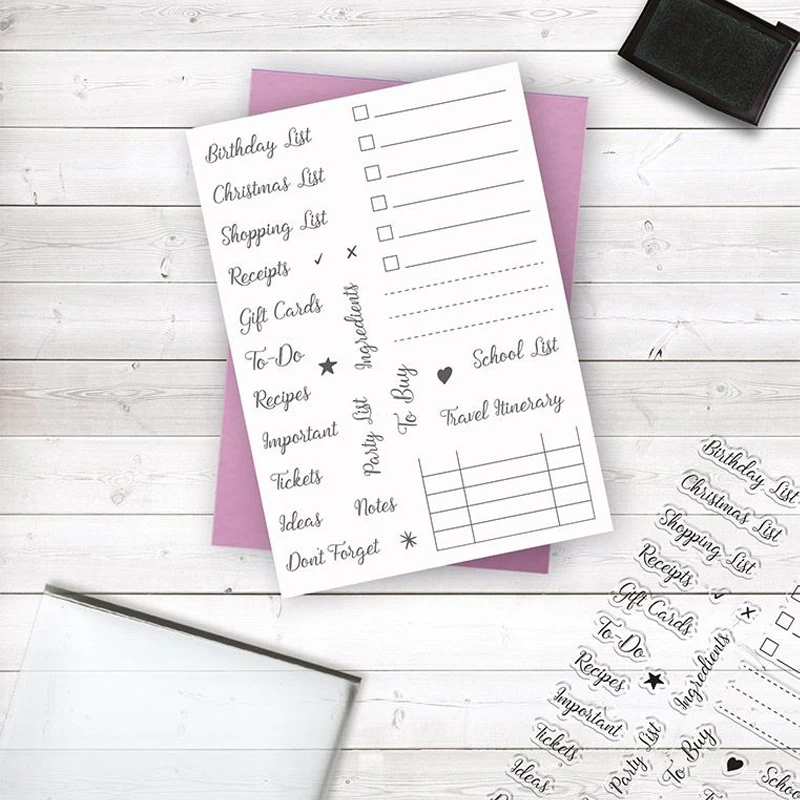 Birthday List
Christmas List
Shopping List
Receipts ✓ x
Gift Cards
To-Do
Recipes
Important
Tickets
Ideas
Don't Forget
Ingredients
Party List
To Buy
Notes
School List
Travel Itinerary
Birthday List
Christmas List
Shopping List
Receipts ✓ x
Gift Cards
To-Do
Recipes
Important
Tickets
Ideas
Ingredients
Party List
To Buy